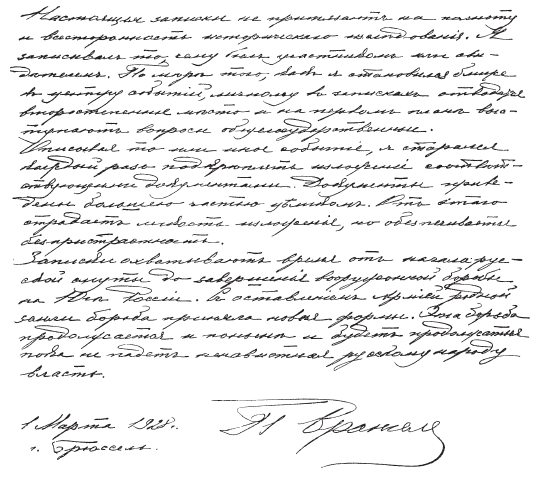 Настоящія записки не притязаютъ на полноту
и всесторонность историческаго изслѣдованія. Я
записывалъ то, чему былъ участникомъ или сви-
дѣтелемъ. По мѣрѣ того, какъ я становился ближе
къ центру событій, личному въ запискахъ отводится
второстепенное мѣсто и на первый планъ выс-
тупаютъ вопросы общегосударственные.
Описывая то или иное событіе, я старался
каждый разъ подкрѣплять изложеніе соотвѣт-
ствующими документами. Документы приве-
дены большею частью цѣликомъ. Отъ этого
страдаетъ легкость изложенія, но обезпечивается
безпристрастность.
Записки охватываютъ время отъ начала рус-
ской смуты до завершенія вооруженной борьбы
на Югѣ Россіи. Съ оставленіемъ Арміей родной
земли борьба приняла новыя формы. Эта борьба
продолжается и понынѣ и будетъ продолжаться
пока не падетъ ненавистная русскому народу
власть.
1 Марта 1928 г.
г. Брюссель.
П Врангель